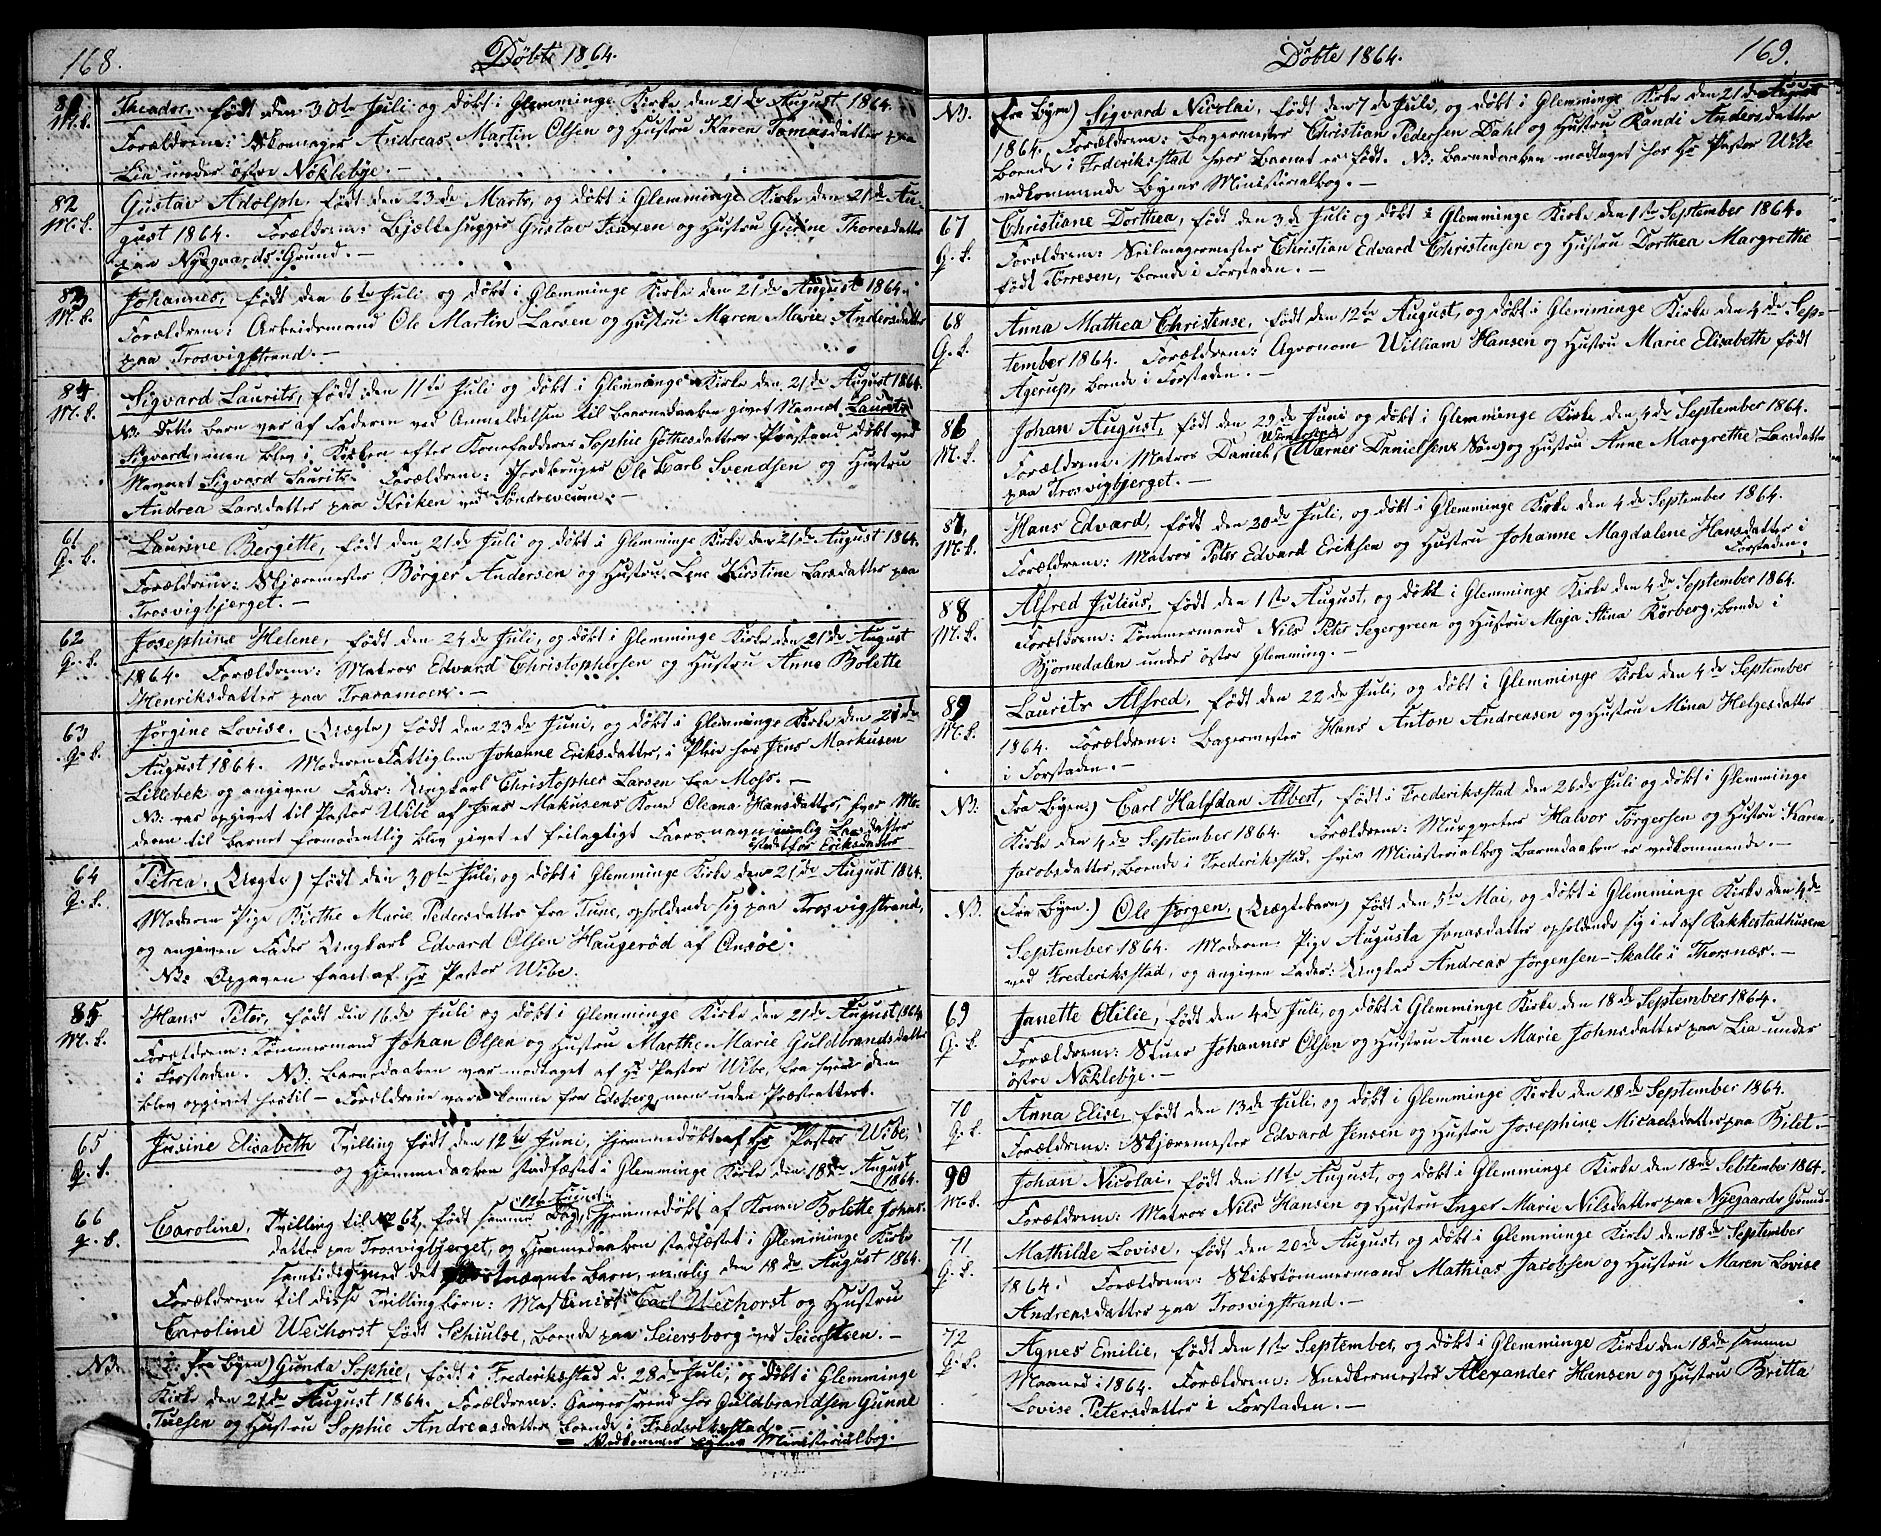 168.
Döbte 1864.
81 Theodor, født den 30te Juli og döbt i Glemminge Kirke den 21de August 1864.
M.k. Forældrene: Skomager Andreas Martin Olsen og Hustru Karen Tomasdatter paa
Lia under östre Nöklebye.—
82 Gustav Adolph, født den 23de Marts, og döbt i Glemminge Kirke den 21de Au-
M.k. gust 1864. Forældrene Bjelkehugger Gustav Isaxen og Hustru Gurine Thoresdatter
paa Nyegaards Grund.—
83 Johannes, født den 6te Juli og döbt i Glemminge Kirke den 21de August 1864.
M.k. Forældrene: Arbeidsmand Ole Martin Larsen og Hustru Maren Marie Andersdatter
paa Trosvigstrand.—
84 Sigvard Laurits, født den 11te Juli og döbt i Glemminge Kirke den 21de August 1864.
M.k. NB. Dette barn var af Faderen ved Anmeldelsen til Barnedaaben givet Navnet Laurits
Sigvard, men blev i Kirken efter Konefadder Sophie Göthesdatters Paastand döbt ved
Navnet Sigvard Laurits. Forældrene: Jordbruger Ole Carl Svendsen og Hustru
Andrea Larsdatter paa Kröken ved Söndreveum.—
61 Laurine Bergitte, født den 21de Juli og döbt i Glemminge Kirke den 21de August 1864.
Q.k. Forældrene: Skjæremester Börger Andersen og Hustru Lene Kirstine Larsdatter paa
Trosvigbjerget.—
62 Josephine Helene, født den 24de Juli, og döbt i Glemminge Kirke den 21de August
Q.k. 1864. Forældrene: Matros Edvard Christophersen og Hustru Anne Bolette
Henriksdatter paa Traramoen.—
63 Jörgine Lovise, (Uægte) født den 23de Juni, og döbt i Glemminge Kirke den 21de
Q.k. August 1864. Moderen Fattiglem Johanne Eriksdatter, i Pleie hos Jens Markusen
Lillebek og angiven Fader: Ungkarl Christopher Larsen fra Moss.—
NB. var opgivet til Pastor Wibe af Jens Makusens Kone Oleana Hansdatter, hvor Mo-
deren til barnet formodentlig blev givet et feilagtigt Faersnavn nemlig Larsdatter
istedetfor Eriksdatter
64 Petrea, (Uægte) født den 30te Juli, og döbt i Glemminge Kirke den 21de August 1864.
Q.k. Moderen Pige Kirthe Marie Pedersdatter fra Tune, opholdende sig paa Trosvigstrand,
og angiven Fader Ungkarl Edvard Olsen Haugeröd af Onsöe.
NB: Opgaven faaet af Hr Pastor Wibe.
85 Hans Peter, født den 16de Juli og döbt i Glemminge Kirke den 21de August 1864
M.k. Forældrene: Tömmermand Johan Olsen og Hustru Marthe Marie Guldbrandsdatter
i Forstaden. NB: Barnedaaben var modtaget af Hr Pastor Wibe, fra hvem den
blev opgivet hertil – Forældrene vare komne fra Edsberg, men uden Præsteattest.
65 Jusine Elisabeth Tvilling født den 12te Juni, hjemmedöbt af Hr Pastor Wibe,
Q.k. og Hjemmedaaben stadfæstet i Glemminge Kirke den 18de August
1864.
66 Caroline, Tvilling til No 65, født samme Dag, hjemmedöbt af Konen Bolette Johans-
Q.k. datter paa Trosvigbjerget, og Hjemmedaaben stadfæstet i Glemminge Kirke
samtidig med det förstnævnte Barn, nemlig den 18de August 1864.
Forældrene til disse Tvillingbörn: Maskinist Carl Wechorst og Hustru
Caroline Wechorst født Schulse, boende paa Seiersborg ved Seierssteen.—
NB. (fra Byen) Gunda Sophie, født i Frederikstad d. 28de Juli, og döbt i Glemminge
Kirke den 21de August 1864. Forældrene: Garversvend hos Guldbrandsen Gunne
Tuesen og Hustru Sophie Andreasdatter boende i Frederiksstad
– Vedkommer Byens Ministerialbog.
Döbte 1864.
169.
NB. (fra Byen) Sigvard Nicolai, født den 7de Juli, og döbt i Glemminge Kirke den 21de August
1864. Forældrene: Bagermester Christian Pedersen Dahl og Hustru Randi Andersdatter
boende i Frederiksstad hvor Barnet er født. NB: barnedaaben modtaget hos Hr Pastor Wibe
vedkommende Byens Ministerialbog.—
67 Christiane Dorthea, født den 3de Juli og döbt i Glemminge Kirke den 1ste September 1864.
Q.k. Forældrene: Seilmagermester Christian Edvard Christensen og Hustru Dorthea Margrethe
født Torresen, boende i Forstaden.—
68 Anna Mathea Christense, født den 12te August, og döbt i Glemminge Kirke den 4de Sep-
Q.k. tember 1864. Forældrene: Agronom William Hansen og Hustru Marie Elisabeth født
Agerup, boende i Forstaden.—
86 Johan August, født den 29de Juni og döbt i Glemminge Kirke den 4de September 1864.
M.k. Forældrene: Matros Daniel (Warner Danielsens Sön) og Hustru Anne Margrethe Larsdatter
paa Trosvigbjerget.—
87 Hans Edvard, født den 20de Juli, og döbt i Glemminge Kirke den 4de September 1864.
M.k. Forældrene: Matros Peter Edvard Eriksen og Hustru Johanne Magdalene Hansdatter i
Forstaden.
88 Alfred Julius, født den 1ste August, og döbt i Glemminge Kirke den 4de September 1864.
M.k. Forældrene: Tömmermand Nils Peter Segergreen og Hustru Maja Stina Rörberg, boende i
Björnedalen under östre Glemming.—
89 Laurits Alfred, født den 22de Juli, og döbt i Glemminge Kirke den 4de September
M.k. 1864. Forældrene: Bagermester Hans Anton Andreasen og Hustru Mina Helgesdatter
i Forstaden.—
NB. (Fra Byen.) Carl Halfdan Albert, født i Frederiksstad den 26de Juli og döbt i Glemminge
Kirke den 4de September 1864. Forældrene: Murgpeter Halvor Törgersen og Hustru Karen
Jacobsdatter, boende i Frederiksstad, hvis Ministerialbog barnedaaben er vedkommende.—
NB. (Fra Byen.) Ole Jörgen, (Uægtebarn) født den 5te Mai, og döbt i Glemminge Kirke den 4de
September 1864. Moderen: Pige Augusta Jonasdatter opholdende sig i et af Rakkestadhusene
ved Frederiksstad, og angiven Fader: Ungkar Andreas Jörgensen–Skalle i Thorsnæs.—
69 Janette Otilie, født den 4de Juli, og döbt i Glemminge Kirke den 18de September 1864.
Q.k. Forældrene: Stuer Johannes Olsen og Hustru Anne Marie Johnsdatter paa Lia under
östre Nöklebye.—
70 Anna Elise, født den 13de Juli, og döbt i Glemminge Kirke den 18de September 1864.
Q.k. Forældrene: Skjæremester Edvard Jensen og Hustru Josephine Micaelsdatter paa Bilet–
90 Johan Nicolai, født den 11te August, og döbt i Glemminge Kirke den 18de September 1864.
M.k. Forældrene: Matros Nils Hansen og Hustru Inger Marie Nilsdatter paa Nyegaards Grund–
71 Mathilde Lovise, født den 20de August, og döbt i Glemminge Kirke den 18de September
Q.k. 1864. Forældrene: Skibstömmermand Mathias Jacobsen og Hustru Maren Lovise
Andreasdatter paa Trosvigstrand.—
72 Agnes Emilie, født den 1ste September, og döbt i Glemminge Kirke den 18de samme
Q.k. Maaned i 1864. Forældrene: Snedkermester Alexander Hansen og Hustru Britta
Lovise Petersdatter i Forstaden.—